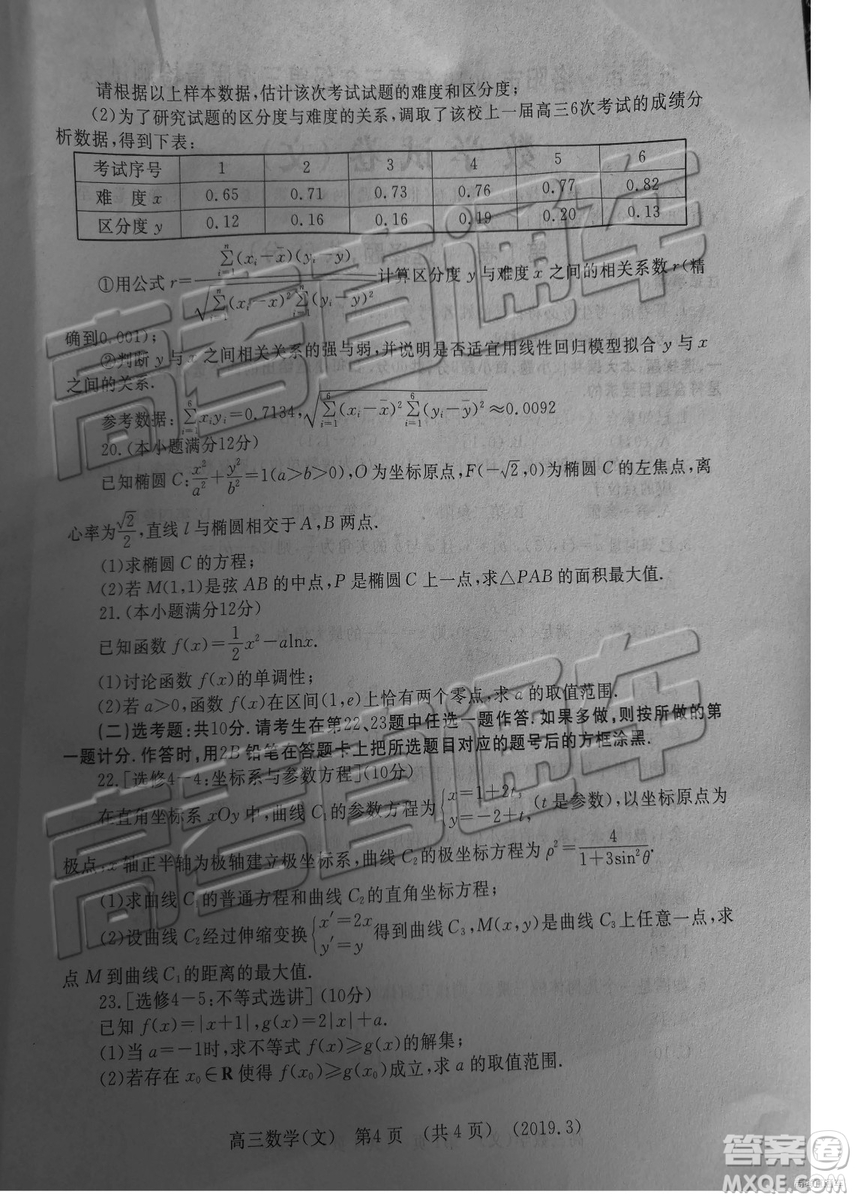 请根据以上样本数据,估计该次考试试题的难度和区分度;
(2)为了研究试题的区分度与难度的关系,调取了该校上一届高三6次考试的成绩分
析数据,得到下表:
考试序号 1 2 3 4 5 6
难 度 x 0.65 0.71 0.73 0.76 0.77 0.82
区分度 y 0.12 0.16 0.16 0.19 0.20 0.13
①用公式 r=\frac{\sum_{i=1}^{n}(x_i-\bar{x})(y_i-\bar{y})}{\sqrt{\sum_{i=1}^{n}(x_i-\bar{x})^2\sum_{i=1}^{n}(y_i-\bar{y})^2}}计算区分度 y 与难度 x 之间的相关系数 r(精
确到0.001);
②判断 y 与 x 之间相关关系的强与弱,并说明是否适宜用线性回归模型拟合 y 与 x
之间的关系.
参考数据:\sum_{i=1}^{6}x_iy_i=0.7134,\sqrt{\sum_{i=1}^{6}(x_i-\bar{x})^2\sum_{i=1}^{6}(y_i-\bar{y})^2}≈0.0092
20.(本小题满分12分)
已知椭圆 C:\frac{x^2}{a^2}+\frac{y^2}{b^2}=1(a>b>0),O为坐标原点,F(-√2,0)为椭圆 C 的左焦点,离
心率为\frac{√2}{2},直线 l 与椭圆相交于 A,B 两点.
(1)求椭圆 C 的方程;
(2)若 M(1,1)是弦 AB 的中点,P 是椭圆 C 上一点,求△PAB 的面积最大值.
21.(本小题满分12分)
已知函数 f(x)=\frac{1}{2}x²-alnx.
(1)讨论函数 f(x)的单调性;
(2)若 a>0,函数 f(x)在区间(1,e)上恰有两个零点,求 a 的取值范围.
(二)选考题:共10分.请考生在第22、23题中任选一题作答.如果多做,则按所做的第
一题计分.作答时,用2B 铅笔在答题卡上把所选题目对应的题号后的方框涂黑.
22.[选修4-4:坐标系与参数方程](10分)
在直角坐标系 xOy 中,曲线 C₁的参数方程为{x=1+2t, y=-2+t,(t 是参数),以坐标原点为
极点,x 轴正半轴为极轴建立极坐标系,曲线 C₂的极坐标方程为 ρ²=\frac{4}{1+3sin²θ}.
(1)求曲线 C₁的普通方程和曲线 C₂的直角坐标方程;
(2)设曲线 C₂经过伸缩变换{x′=2x y′=y 得到曲线 C₃,M(x,y)是曲线 C₃上任意一点,求
点 M 到曲线 C₁的距离的最大值.
23.[选修4-5:不等式选讲](10分)
已知 f(x)=|x+1|,g(x)=2|x|+a.
(1)当 a=-1时,求不等式 f(x)≥g(x)的解集;
(2)若存在 x₀∈R 使得 f(x₀)≥g(x₀)成立,求 a 的取值范围.
高三数学(文) 第4页 (共4页) (2019.3)
高考直通车
高考直通车
答案圈
MXQE.COM